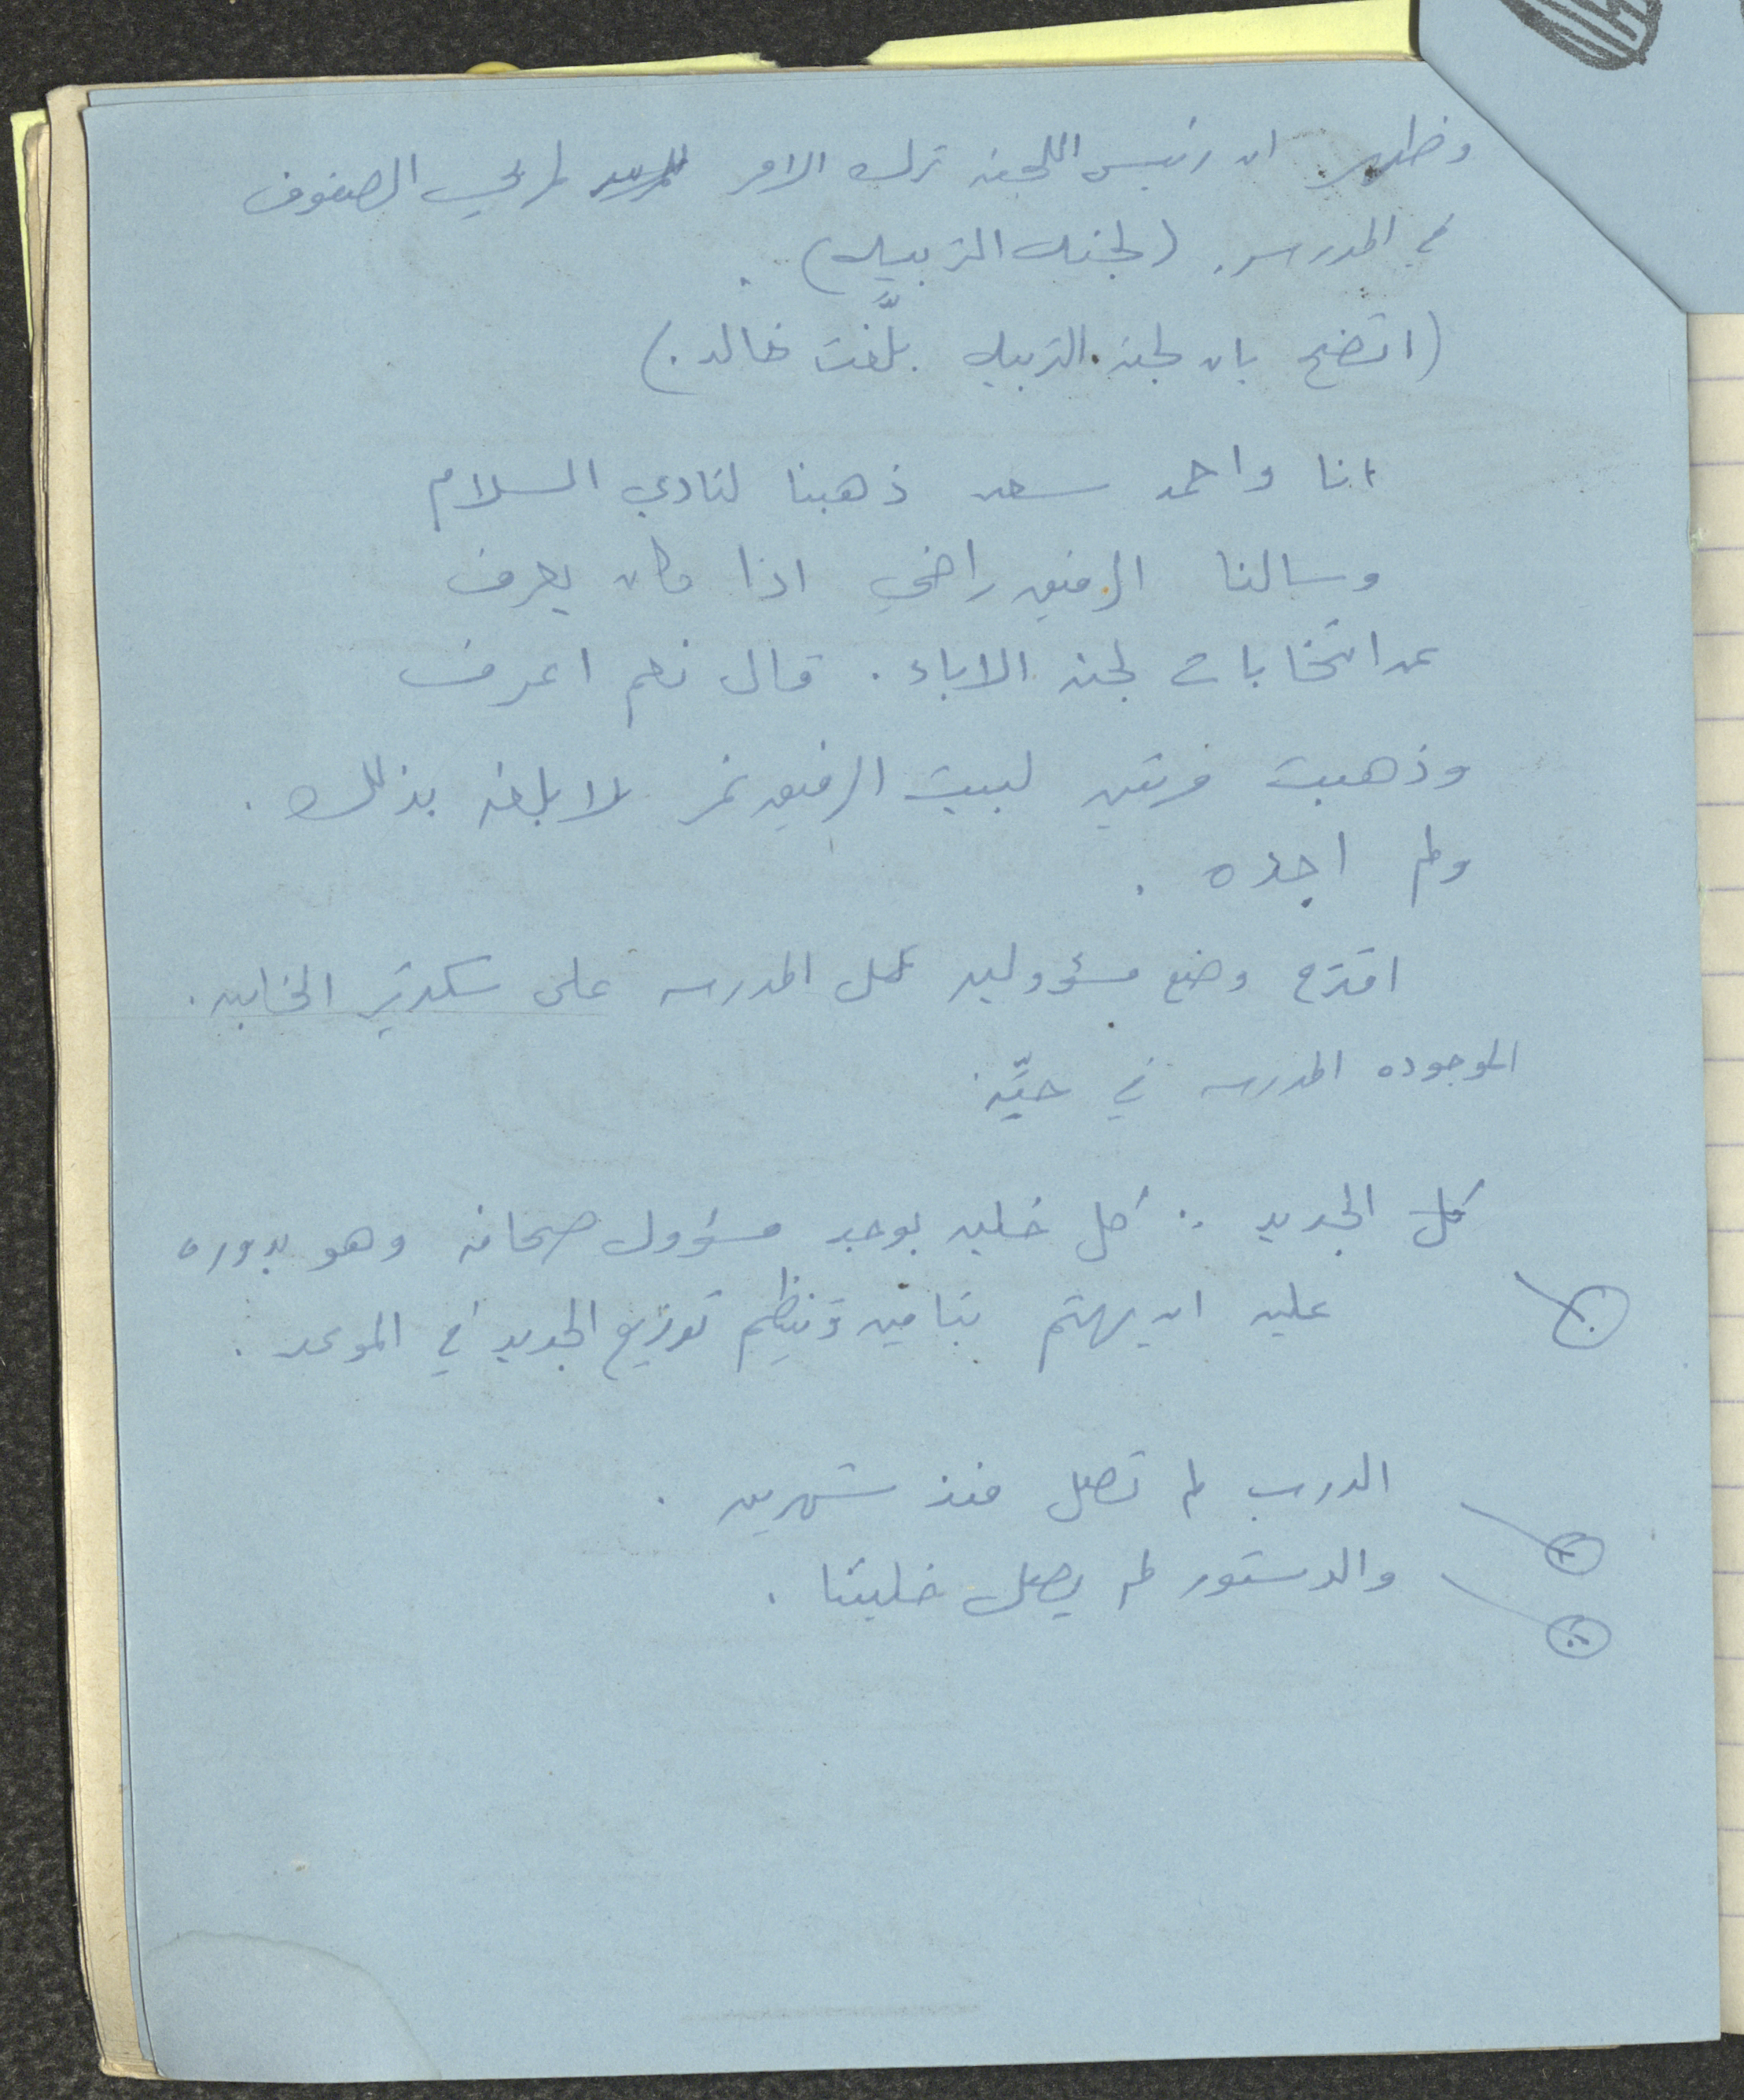 وظهر ان رئيس اللجنه ترك الامر لمربي الصفوف
في المدرسه. (لجنه التربيه).
(اتضح بان لجنه التربيه بلَّغت خالد.)
انا واحمد سعد ذهبنا لنادي السلام
وسالنا الرفيق راضي اذا كان يعرف
عن انتخابات لجنه الاباء. قال نعم اعرف
وذهبت مرتين لبيت الرفيق نمر لابلغه بذلك.
ولم اجده.
اقترح وضع مسؤوليه عمل المدرسه على سكرتير الخليه.
الموجوده المدرسه في حيِّه
الجديد: كل خليه يوجد مسؤول صحافه وهو بدوره
عليه ان يهتم بتامين وتنظيم توزيع الجديد في الموعد.
الدرب لم تصل منذ شهرين.
والدستور لم يصل خليتنا.